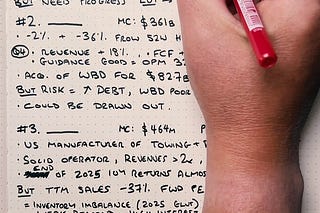 BUT NEED PROGRESS
#2. MC: $361B
· -2% + -36% FROM 52W H
Q4 · REVENUE + 18%. · FCF +
· GUIDANCE GOOD = OPM 3
· ACQ. OF WBD FOR $82.7B
BUT RISK = ↑ DEBT, WBD POOR
· COULD BE DRAWN OUT.
#3. MC: $464M P
· US MANUFACTURER OF TOWING +
· SOLID OPERATOR, REVENUES >2x
· END OF 2025 10YR RETURNS ALMOS
BUT TTM SALES -37%. FWD PE
= INVENTORY IMBALANCE (2025 GLUT)